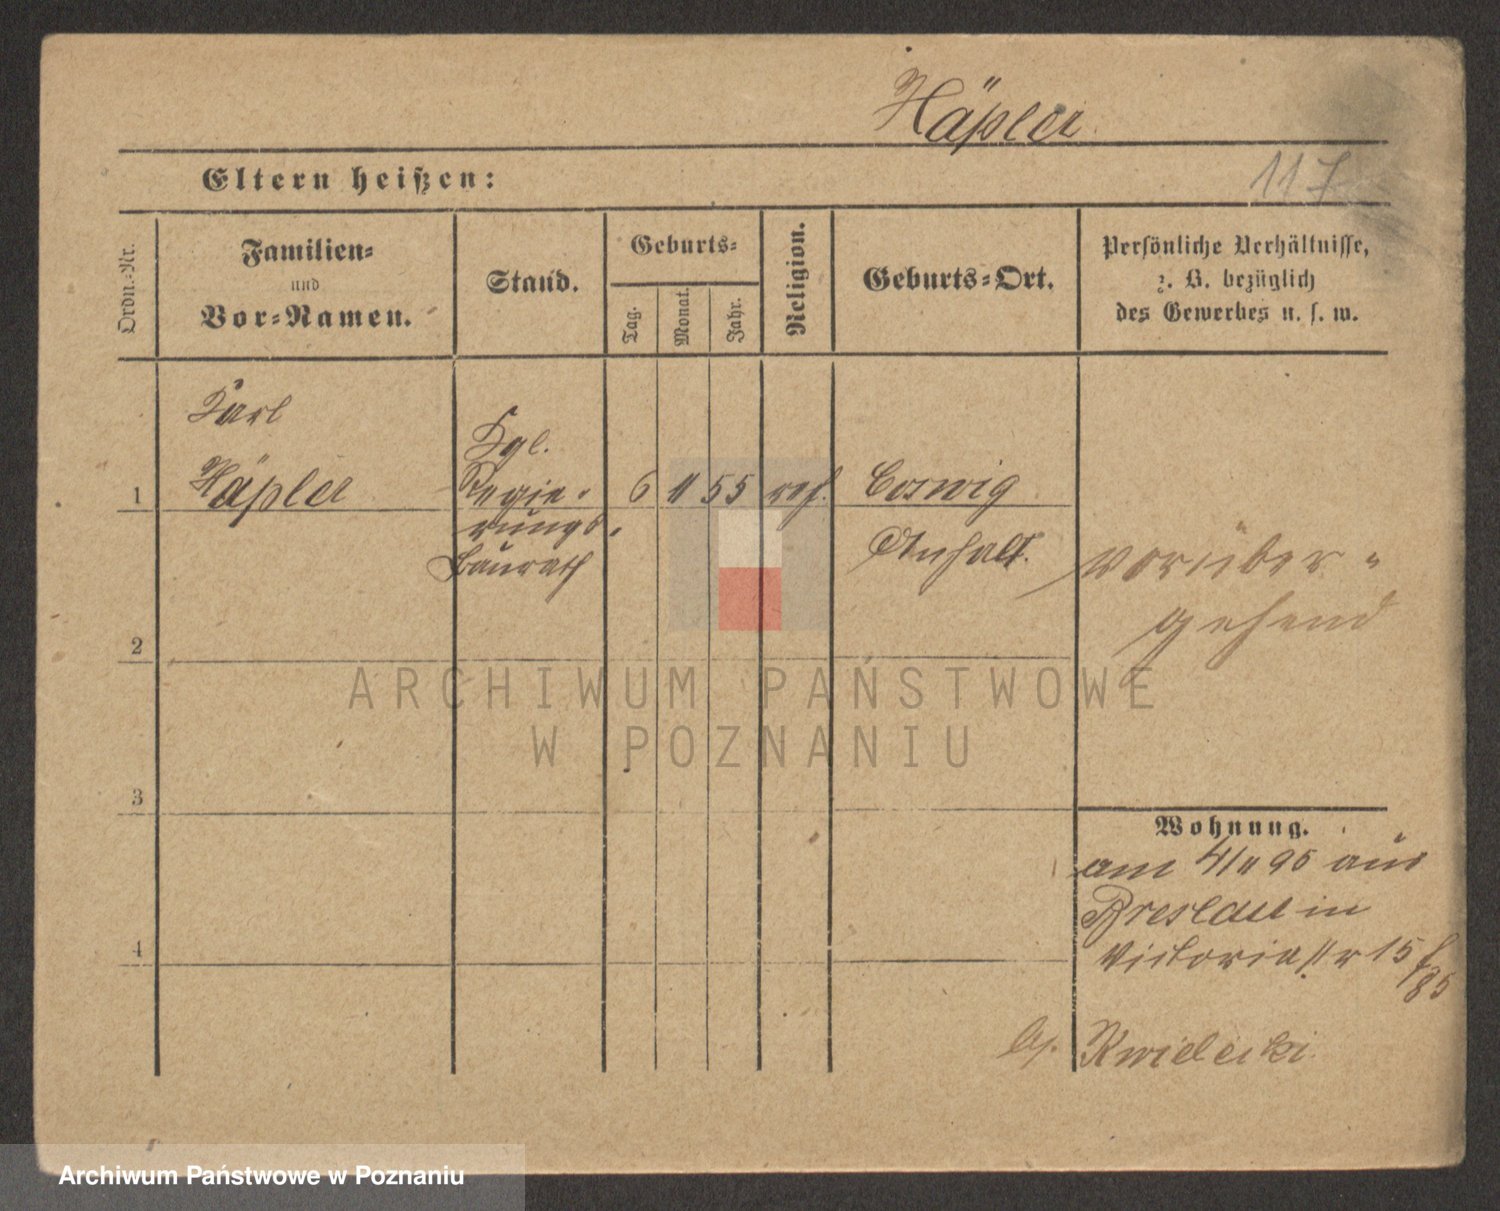 Häpler
117
Eltern heißen:
Ordn.-Nr.
Familien-
und
Vor-Namen.
Stand.
Geburts-
Tag.
Monat.
Jahr.
Religion.
Geburts-Ort.
Persönliche Verhältnisse,
z. B. bezüglich
des Gewerbes u. s. w.
Karl
Kgl.
1 Häpler Regie- 6 11 55 ref. Coswig
rungs-
Baurath
Anhalt.
vorüber-
gehend
2
ARCHIWUM PAŃSTWOWE
W POZNANIU
3
Wohnung.
am 4/11 95 aus
Breslau in
4
Victoriastr 15
Kwilecki
Archiwum Państwowe w Poznaniu